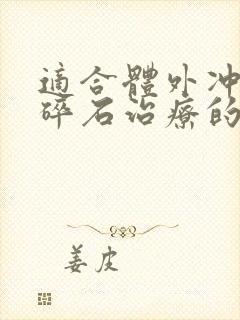 適合體外冲
碎石治療的
姜皮